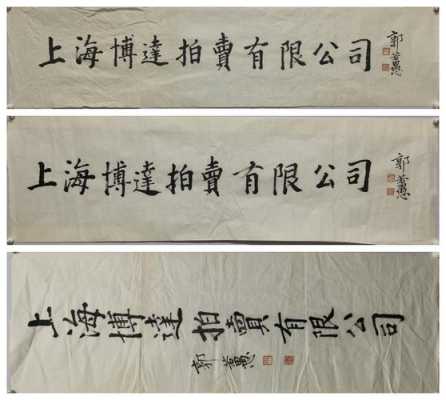 上海博達拍賣有限公司
郭若愚
上海博達拍賣有限公司
郭若愚
上海博達拍賣有限公司
郭若愚